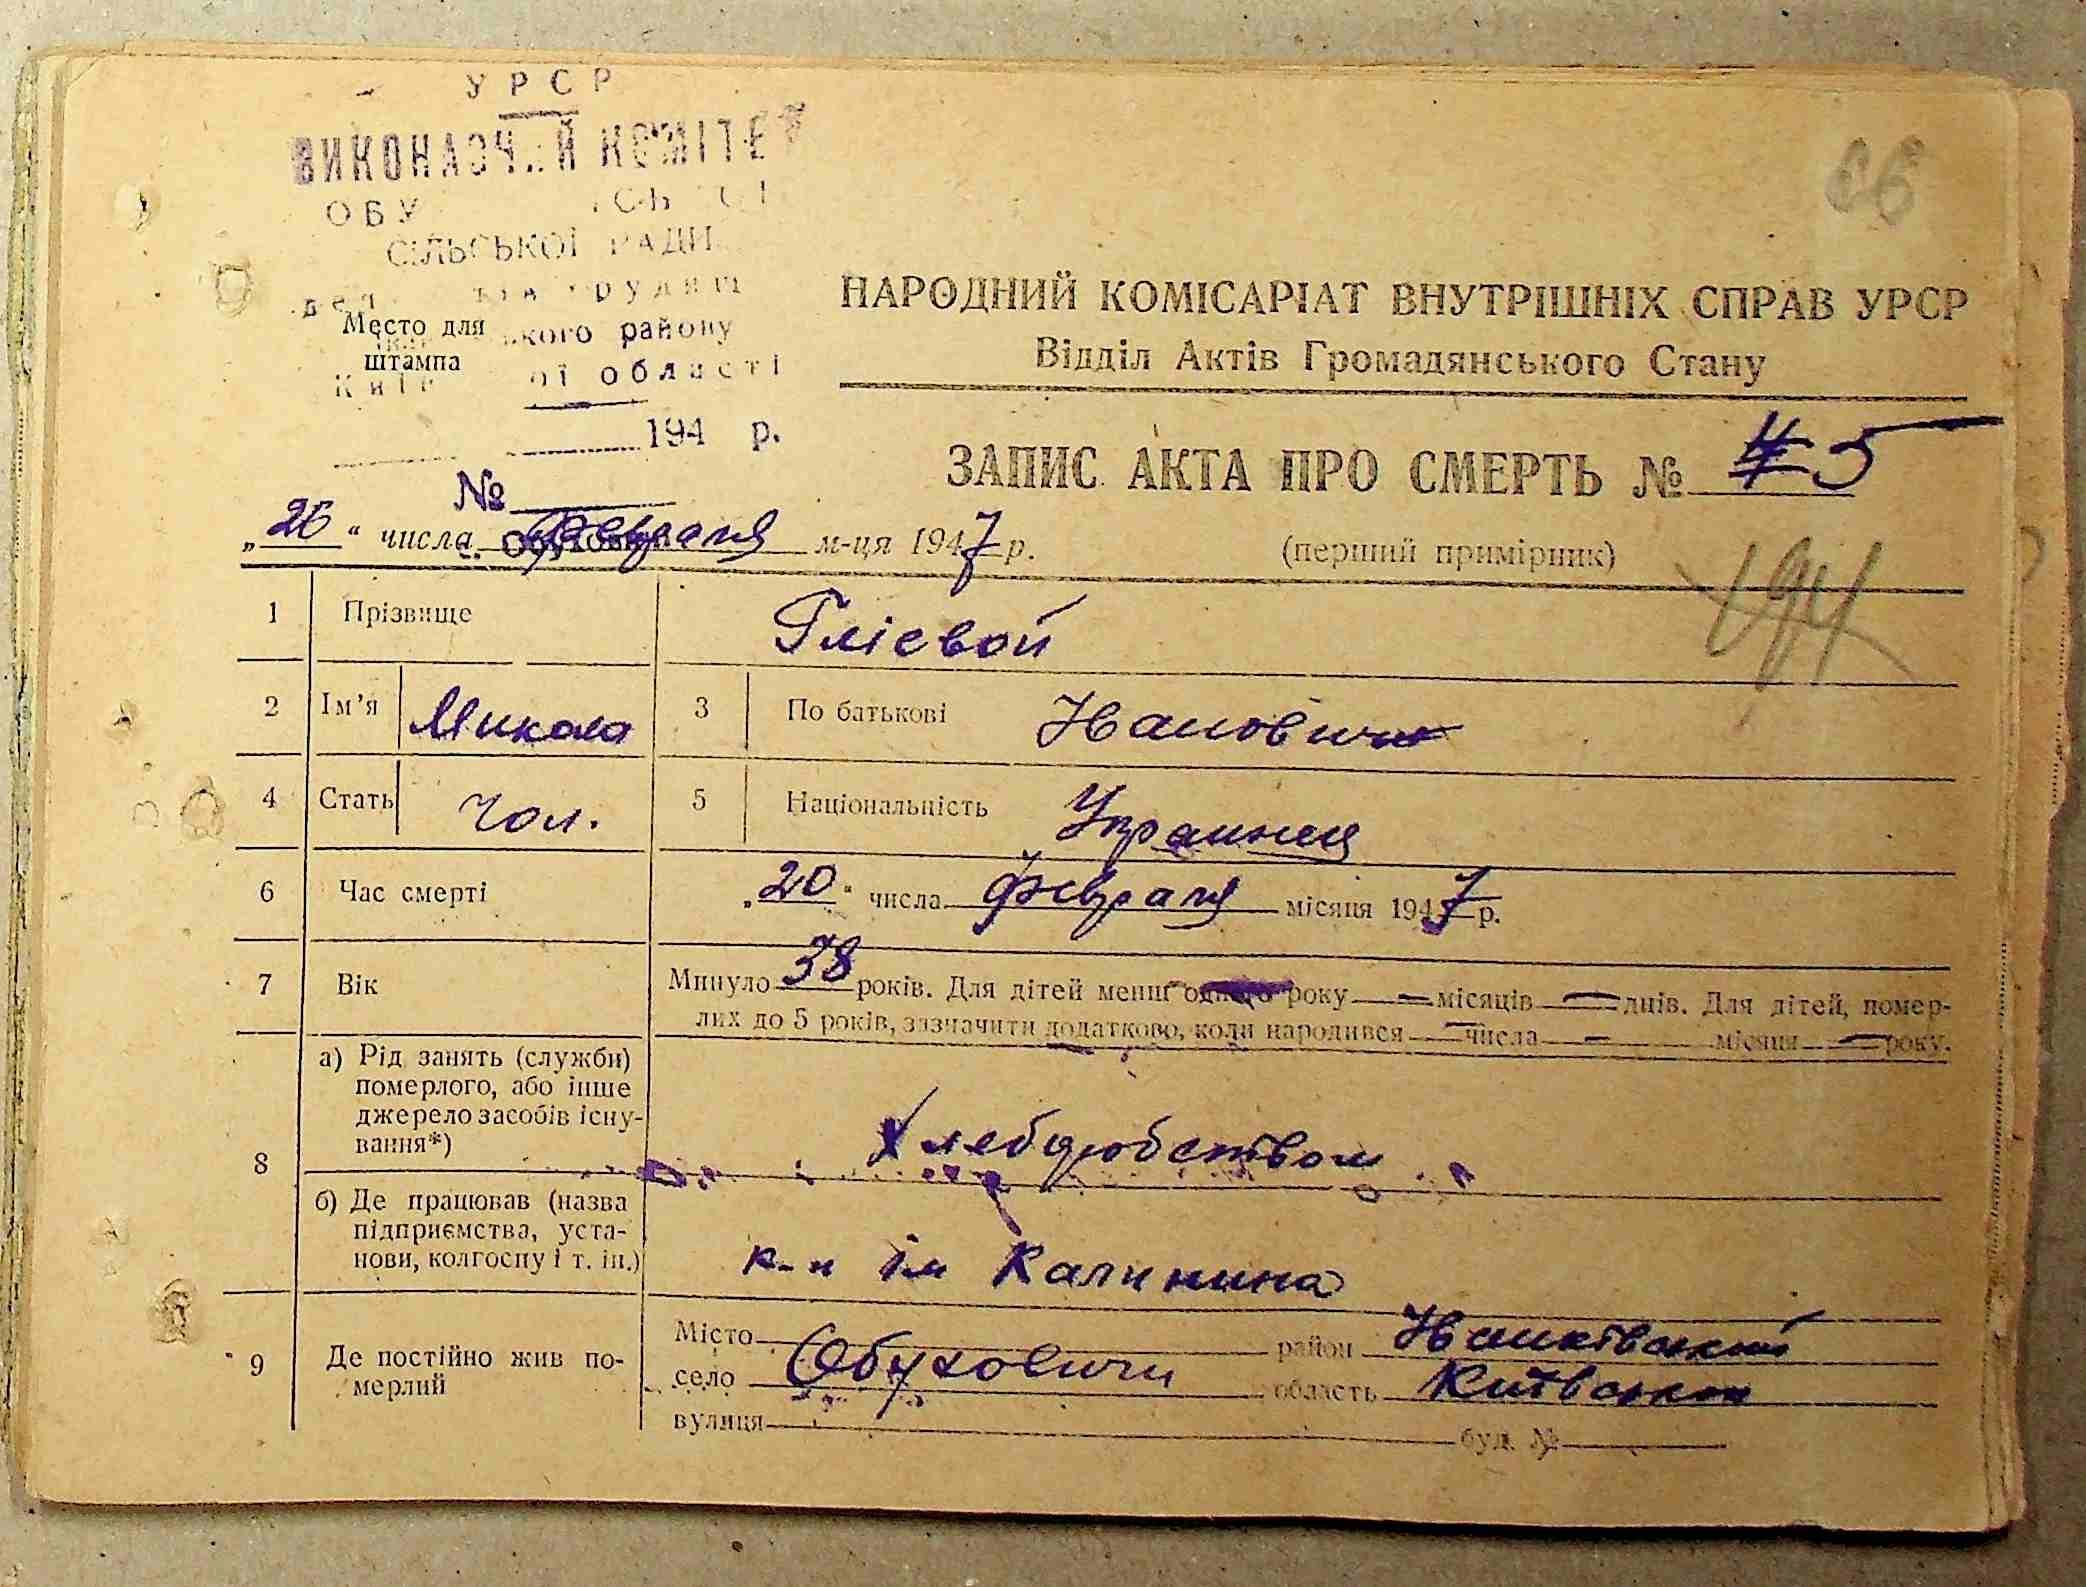 УРСР
ВИКОНАВЧИЙ КОМІТЕТ
СІЛЬСЬКОЇ РАДИ
району
області
Место для
штампа
194 р.
№
66
НАРОДНИЙ КОМІСАРІАТ ВНУТРІШНІХ СПРАВ УРСР
Відділ Актів Громадянського Стану
ЗАПИС АКТА ПРО СМЕРТЬ № 5
„26“ числа февраля м-ця 1947 р.
(перший примірник)
1 Прізвище Глієвой
2 Ім’я Микола 3 По батькові Иванович
4 Стать Чол. 5 Національність Украинец
6 Час смерті „20“ числа февраля місяця 1947 р.
7 Вік Минуло 38 років. Для дітей менш одного року — місяців — днів. Для дітей, помер-
лих до 5 років, зазначити додатково, коли народився — числа — місяця — року.
8 а) Рід занять (служби)
померлого, або інше
джерело засобів існу-
вання*)
б) Де працював (назва
підприємства, уста-
нови, колгоспу і т. ін.)
к-п ім Калинина
9 Де постійно жив по-
мерлий
Місто район Иванківський
село Обуховичи область Київська
вулиця буд. №